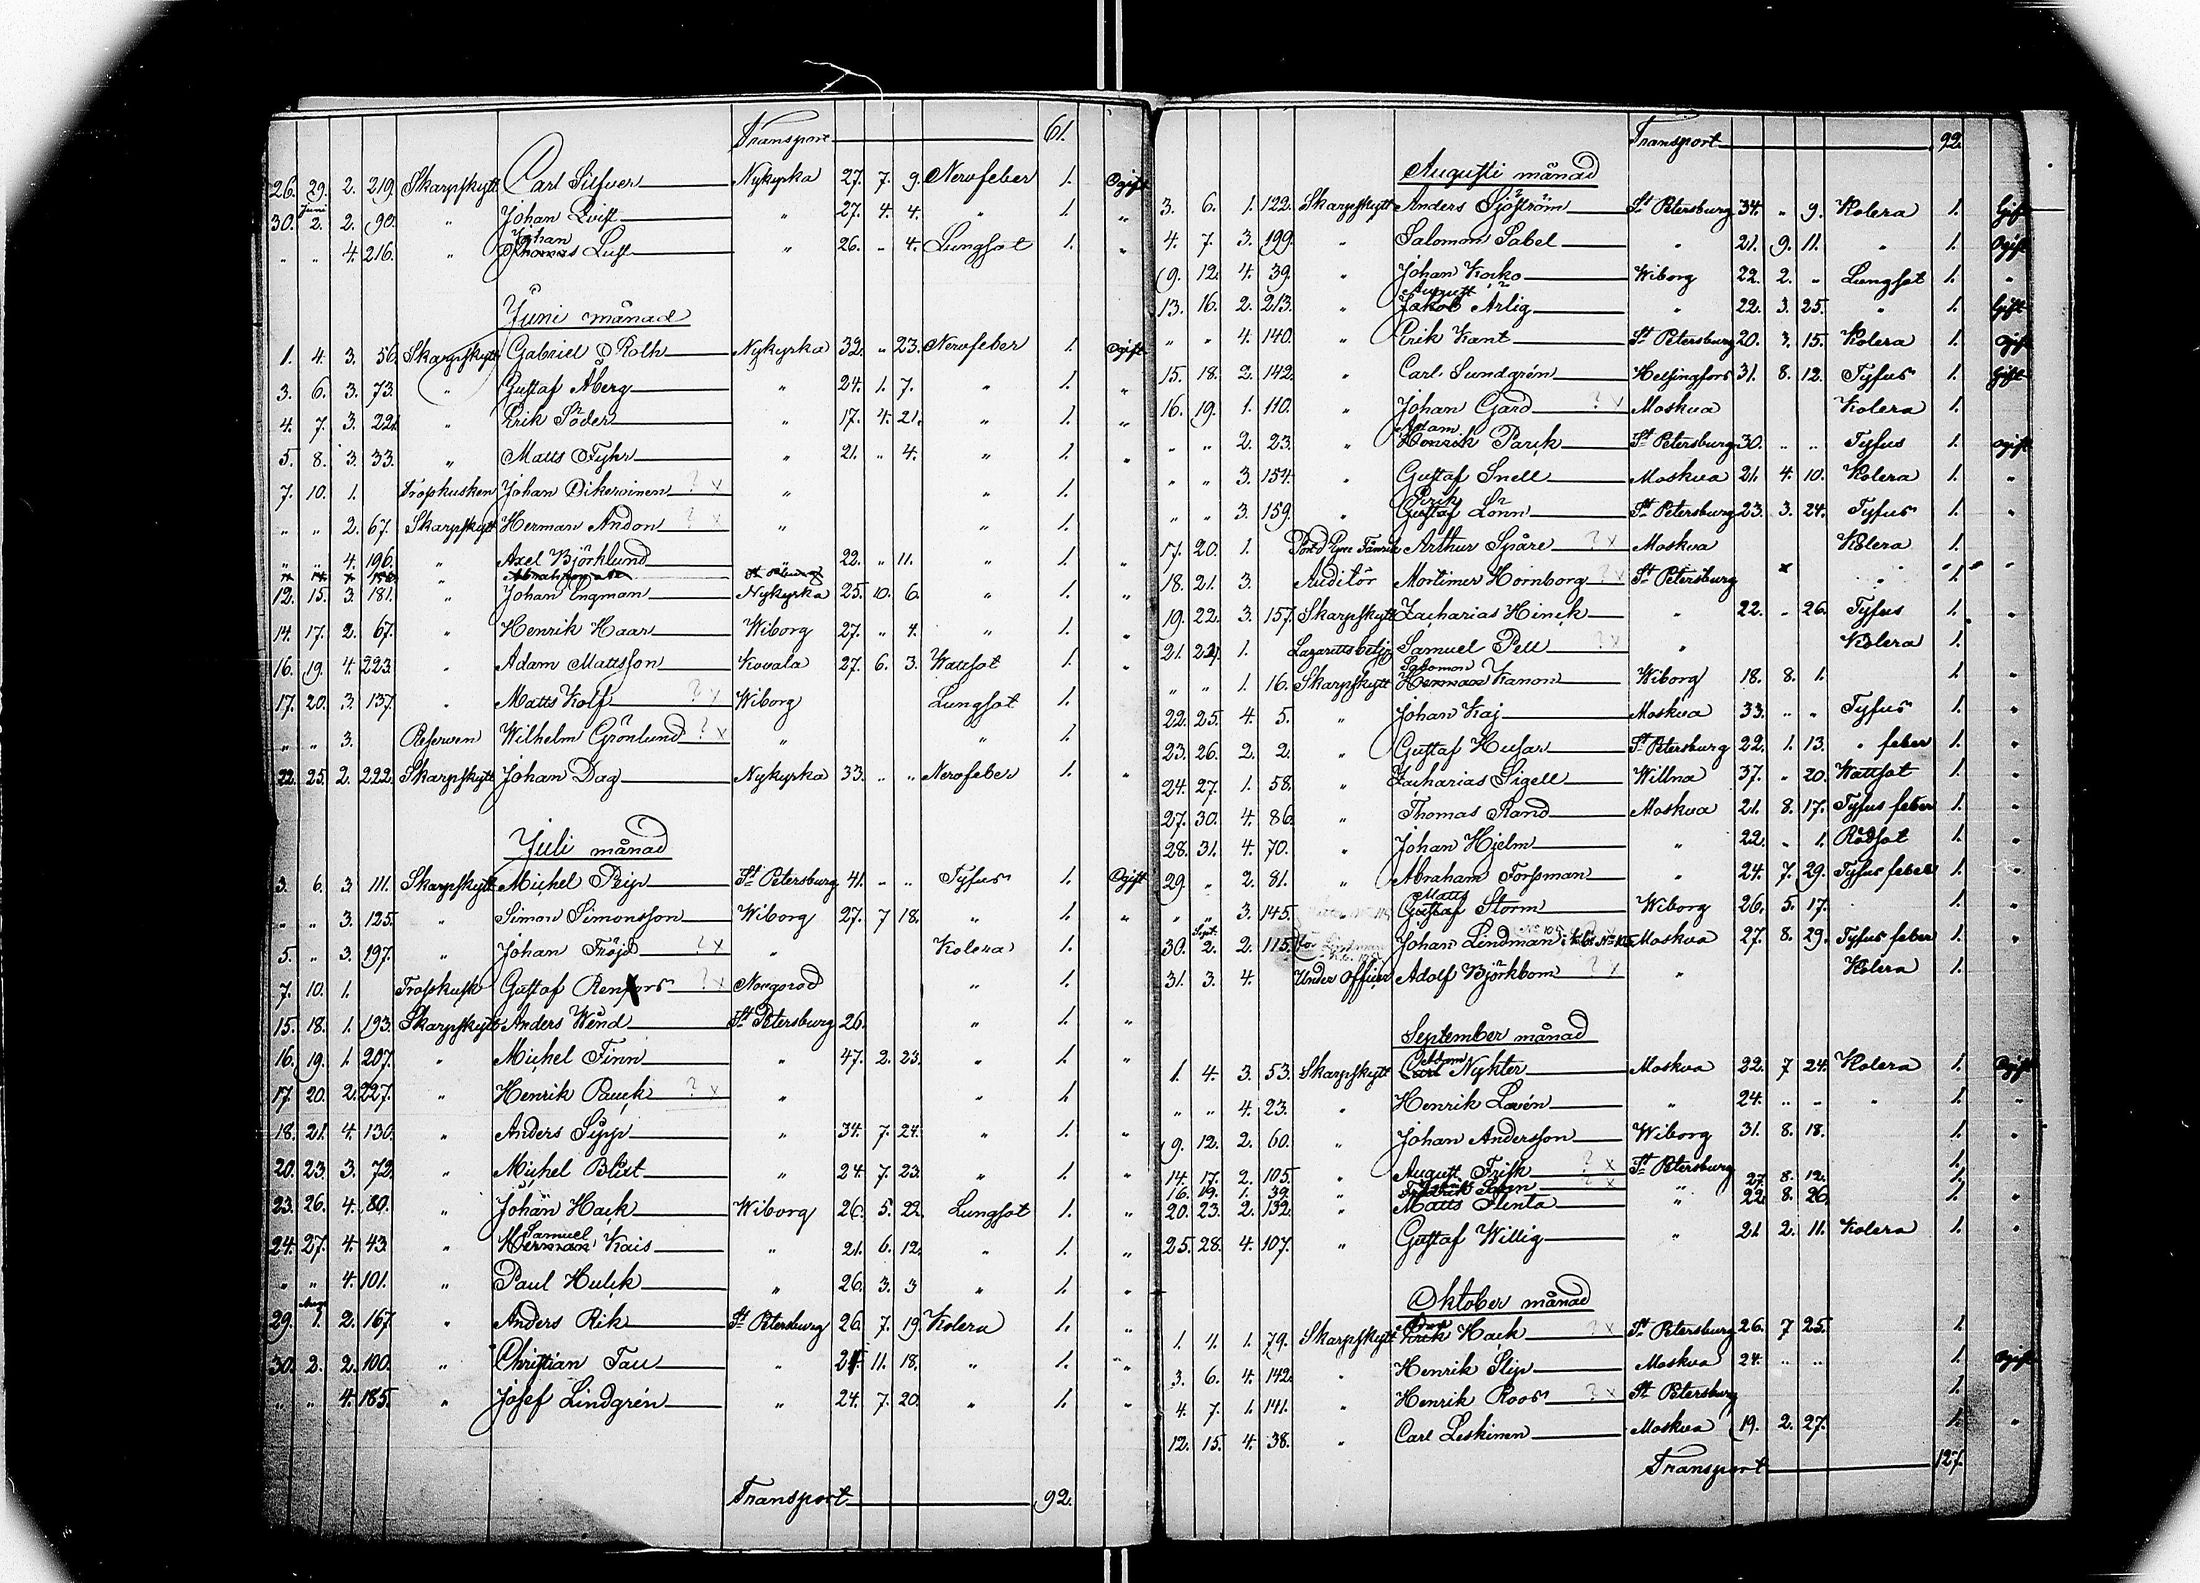 Transport 61.
26. 29. 2. 219. Skarpskytt Carl Silfver Nykyrka 27. 7. 9. Nervfeber 1. Ogift
30. Juni 2. 2. 90. " Johan Qvist " 27. 4. 4. " 1. "
" " 4. 216. " Johan Thomas Lust " 26. " 4. Lungsot 1. "
Juni månad
1. 4. 3. 56. Skarpskytt Gabriel Roth Nykyrka 32. " 23. Nervfeber 1. Ogift
3. 6. 3. 73. " Gustaf Åberg " 24. 1. 7. " 1. "
4. 7. 3. 221. " Erik Söder " 17. 4. 21. " 1. "
5. 8. 3. 33. " Matts Fyhr " 21. " 4. " 1. "
7. 10. 1. Trosskusken Johan Dikervinen ? x " " 1.
" " 2. 67. Skarpskytt Herman Andon ? x " " 1.
" " 4. 196. " Axel Björklund " 22. " 11. " 1. "
12. 15. 3. 181. " Johan Engman Nykyrka 25. 10. 6. " 1. "
14. 17. 2. 67. " Henrik Haar Wiborg 27. " 4. " 1. "
16. 19. 4. 223. " Adam Mattsson Kovala 27. 6. 3. Wattsot 1. "
17. 20. 3. 137. " Matts Kolf ? x Wiborg Lungsot 1.
" " 3. Reserven Wilhelm Grönlund ? x " " 1.
22. 25. 2. 222. Skarpskytt Johan Dag Nykyrka 33. " " Nervfeber 1. "
Juli månad
3. 6. 3 111. Skarpskytt Michel Pip St Petersburg 41. " " Tyfus 1. Ogift
" " 3. 125. " Simon Simonsson Wiborg 27. 7 18. " 1. "
5. " 3. 197. " Johan Fröjd ? x " Kolera 1.
7. 10. 1. Trosskusk Gustaf Renfors ? x Novgorod " 1.
15. 18. 1. 193. Skarpskytt Anders Wänd St Petersburg 26. " 1. "
16. 19. 1. 207. " Michel Finn " 47. 2. 23. " 1. "
17. 20. 2. 227. " Henrik Pauck ? x " " 1.
18. 21. 4. 130. " Anders Sipp " 34. 7. 24. " 1. "
20. 23. 3. 72. " Michel Blixt " 24. 7. 23. " 1. "
23. 26. 4. 80. " Johan Hack Wiborg 26. 5. 22. Lungsot 1. "
24. 27. 4. 43. " Samuel Herman Kais " 21. 6. 12. " 1. "
" " 4. 101. " Paul Hulck " 26. 3. 3 " 1. "
29. Aug. 1. 2. 167 " Anders Rik St Petersburg 26. 7. 19. Kolera 1. "
30. 2. 2. 100. " Christian Tau " 21. 11. 18. " 1. "
" " 4. 185. " Josef Lindgrén " 24. 7. 20. " 1. "
Transport 92.
Transport 92.
Augusti månad
3. 6. 1. 122. Skarpskytt Anders Sjöström St Petersburg 34. " 9. Kolera 1. Gift
4. 7. 3. 199. " Salomon Sabel " 21. 9. 11. " 1. Ogift
9. 12. 4. 39. " Johan Korko Wiborg 22. 2. " Lungsot 1. "
13. 16. 2. 213. " August Jakob Ärlig " 22. 3. 25. " 1. Gift
" " 4. 140. " Erik Kant St Petersburg 20. 3. 15. Kolera 1. Ogift
15. 18. 2. 142. " Carl Sundgrén Helsingfors 31. 8. 12. Tyfus 1. Gift
16. 19. 1. 110. " Johan Gard ? x Moskva Kolera 1.
" " 2. 23. " Adam Henrik Parck St Petersburg 30. " " Tyfus 1. Ogift
" " 3. 154. " Gustaf Snell Moskva 21. 4. 10. Kolera 1. "
" " 3. 159. " Erik Gustaf Lönn St Petersburg 23. 3. 24. Tyfus 1. "
17. 20. 1. Arthur Spåre ? x Moskva Kolera
18. 21. 3. Auditör Mortimer Hornborg ? x St Petersburg " 1. "
19. 22. 3. 157. Skarpskytt Zacharias Hinck " 22. " 26. Tyfus 1. "
21. 24. 1. Lazarettsbetj. Samuel Pell ? x " Kolera 1.
" " 1. 16. Skarpskytt Salomon Herman Kanon Wiborg 18. 8. 1. 1. "
22. 25. 4. 5. " Johan Kaj Moskva 33. " " Tyfus 1. "
23. 26. 2. 2. " Gustaf Husar St Petersburg 22. 1. 13. " feber 1. "
24. 27. 1. 58. " Zacharias Sigell Willna 37. " 20. Wattsot 1. "
27. 30. 4. 86. " Thomas Rand Moskva 21. 8. 17. Tyfus feber 1. "
28. 31. 4. 70. " Johan Hjelm " 22. " 1. Rödsot 1. "
29. " 2. 81. " Abraham Forssman " 24. 7. 29. Tyfus feber 1. "
" " 3. 145. Matts Gustaf Storm Wiborg 26. 5. 17. 1. "
30. Sept. 2. 2. 115. Johan Lindman Moskva 27. 8. 29. Tyfus feber 1. "
31. 3. 4. Under Officer Adolf Björkbom ? x " Kolera 1.
September månad
1. 4. 3. 53. Skarpskytt Adam Carl Nykter Moskva 22. 7 24. Kolera 1. Ogift
" " 4. 23. " Henrik Lavén " 24. " " " 1. "
9. 12. 2. 60. " Johan Andersson Wiborg 31. 8. 18. 1. "
14. 17. 2. 105. " August Frisk ? x St Petersburg 1.
16. 19. 1. 39. " Fredrik ? x " 27. 8. 12. 1.
20. 23. 2. 132. " Matts Flinta " 22. 8. 26. 1. "
25. 28. 4. 107. " Gustaf Willig " 21 2. 11. Kolera 1. "
Oktober månad
1. 4. 1. 79. Skarpskytt Erik Hack ? x St Petersburg 26. 7 25. 1.
3. 6. 4. 142. " Henrik Slip Moskva 24. " " 1. Ogift
4. 7. 1. 141. " Henrik Roos ? x St Petersburg 1.
12. 15. 4. 38. " Carl Leskinen Moskva 19. 2. 27. 1. "
Transport 127.